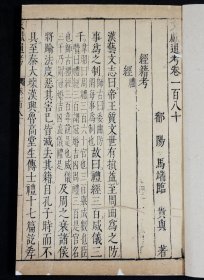 獻通考卷一百八十
鄱陽馬端臨貴與著
經籍考
經禮
漢藝文志曰帝王質文世有損益至周曲爲之防
事爲之制故曰禮經三百威儀三
千及周之衰諸侯
將踰法度惡其害已皆滅去其籍自孔子時而不
具至秦大壞漢興魯高堂生傳士禮十七篇訖孝